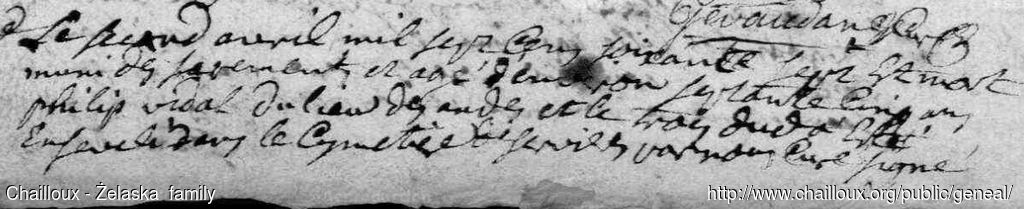 Gévaudan
Le second avril mil sept cens soixante sept Est mort
muni des sacrements et agé d'environ septante Cinq ans
philip vidal du lieu des andes et le trois dud a Esté
Enseveli dans le Cymetiere servises par nous Curé signé
Chailloux - Żelaska family
http://www.chailloux.org/public/geneal/